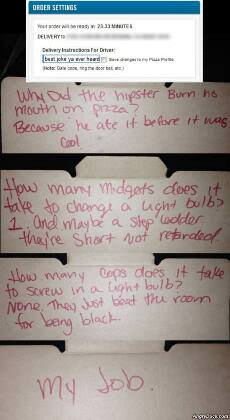 ORDER SETTINGS
Your order will be ready in: 23-33 MINUTES
DELIVERY TO
Delivery Instructions For Driver:
best joke yu ever heard Save changes to my Pizza Profile.
(Note: Gate code, ring the door bell, etc.)
Why Did the hipster Burn his
mouth on pizza?
Because he ate it before it was
cool
How many midgets does it
take to change a light bulb?
1. And maybe a step ladder.
they're short not retarded.
How many cops does it take
to screw in a light bulb?
None. They just beat the room
for being black.
My Job.